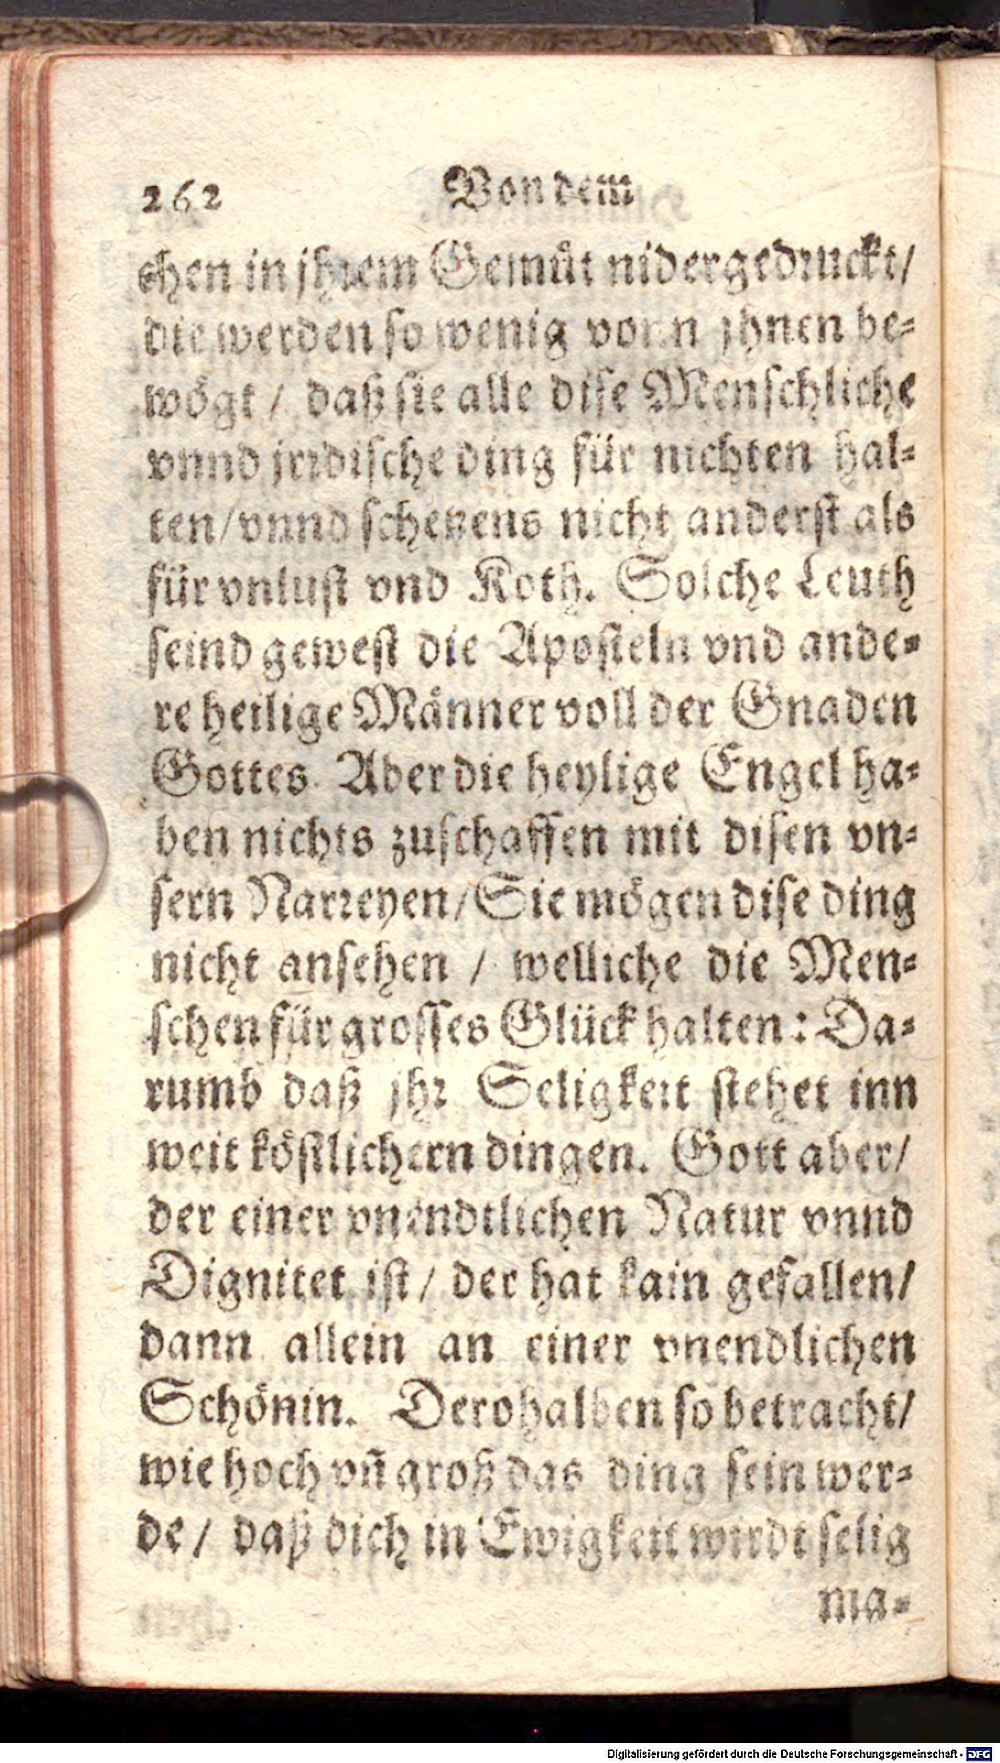 262 Von dem
chen in jhrem Gemüt nidergedruckt/
die werden so wenig vonn jhnen be-
wögt / daß sie alle dise Menschliche
vnnd jrrdische ding für nichten hal-
ten/vnnd schetzens nicht anderst als
für vnlust vnd Koth. Solche Leuth
seind gewest die Aposteln vnd ande-
re heilige Männer voll der Gnaden
Gottes. Aber die heylige Engel ha-
ben nichts zuschaffen mit disen vn-
sern Narreyen/Sie mögen dise ding
nicht ansehen / welliche die Men-
schen für grosses Glück halten: Da-
rumb daß jhr Seligkeit stehet inn
weit köstlichern dingen. Gott aber/
der einer vnendtlichen Natur vnnd
Dignitet ist/ der hat kain gefallen/
dann allein an einer vnendlichen
Schönin. Derohalben so betracht/
wie hoch vñ groß das ding sein wer-
de/ daß dich in Ewigkeit wirdt selig
ma-
Digitalisierung gefördert durch die Deutsche Forschungsgemeinschaft - DFG